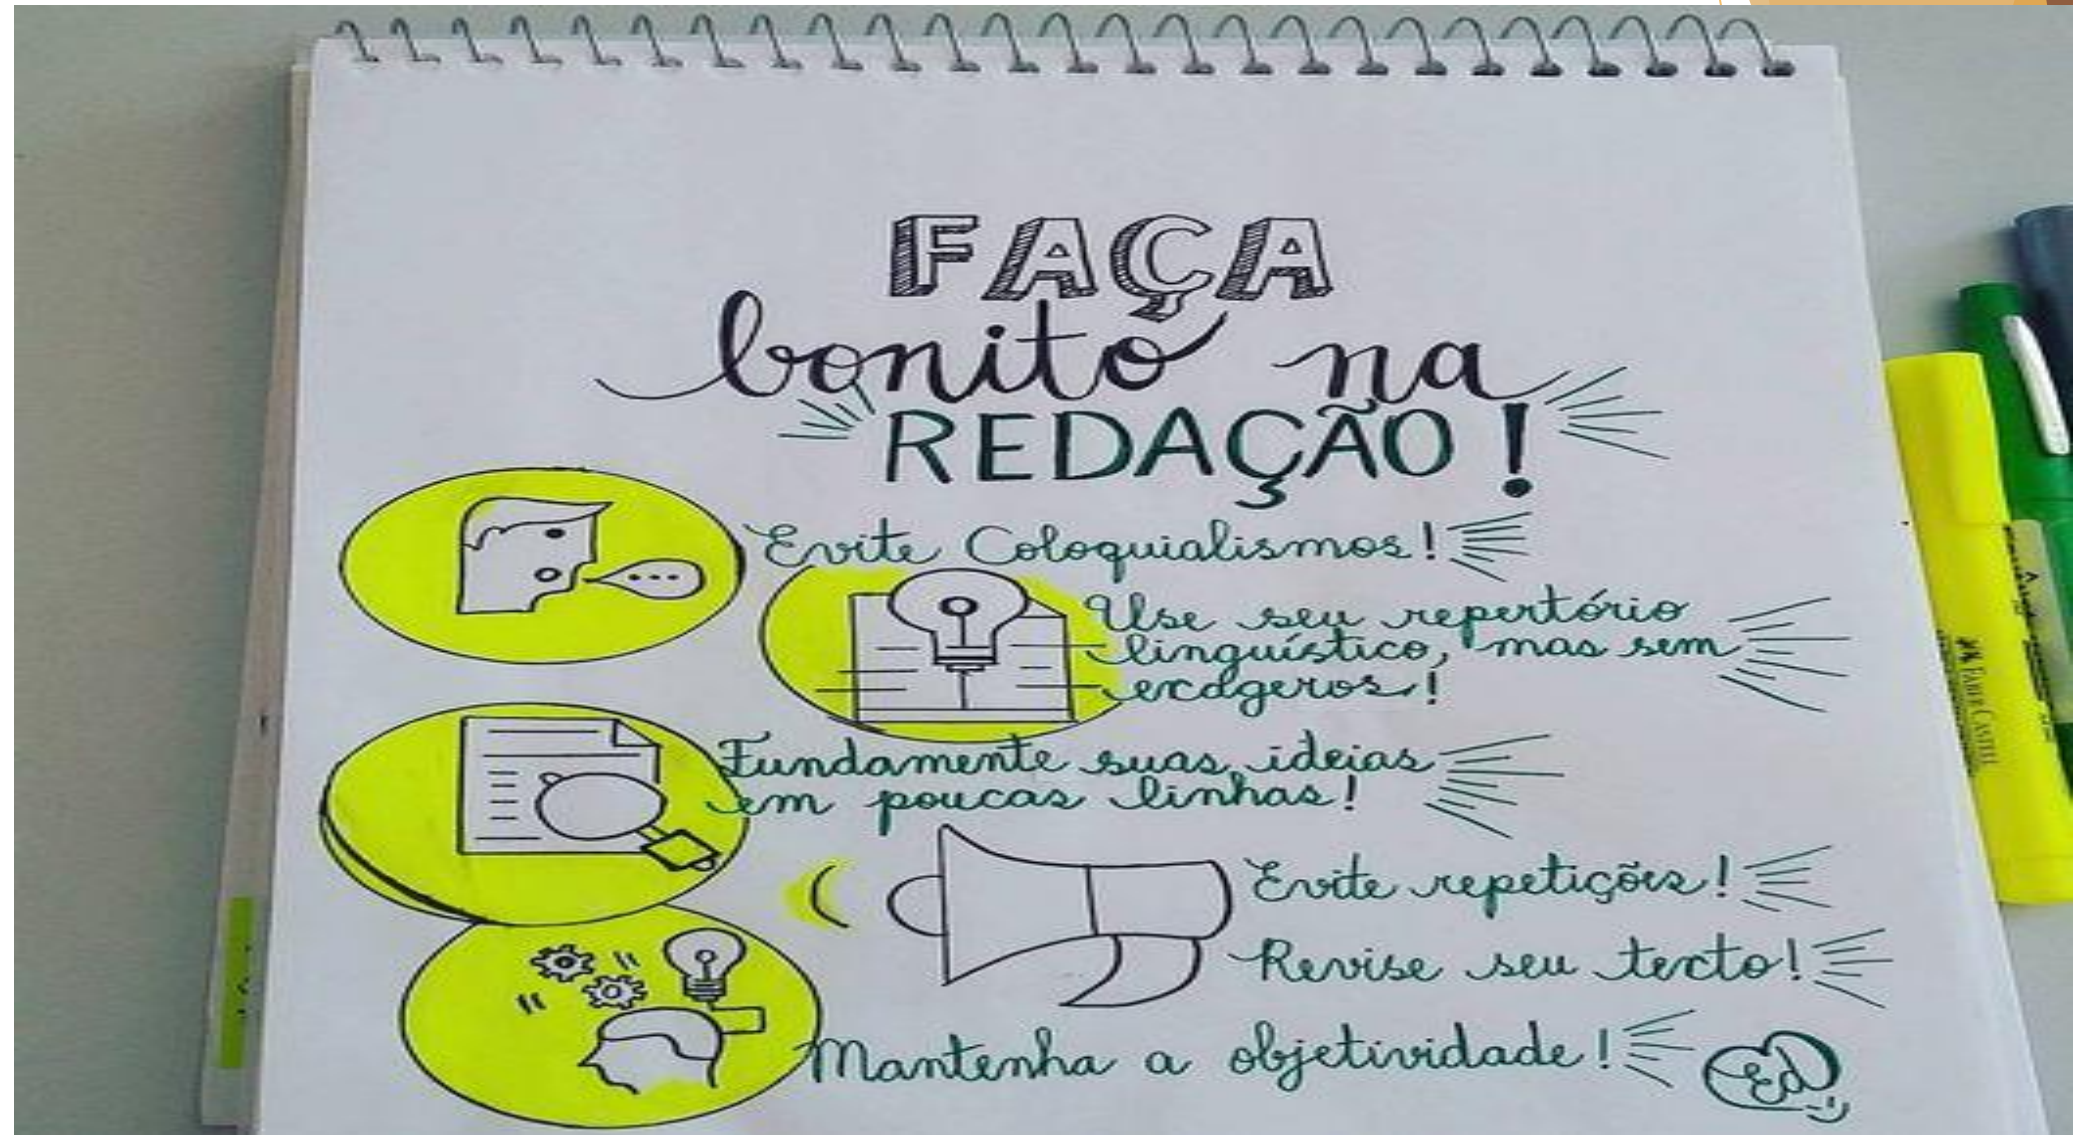 FAÇA
bonito na
REDAÇÃO!
Evite Coloquialismos!
Use seu repertório
linguístico, mas sem
exageros!
Fundamente suas ideias
em poucas linhas!
Evite repetições!
Revise seu texto!
Mantenha a objetividade!
Ed
FABER-CASTELL